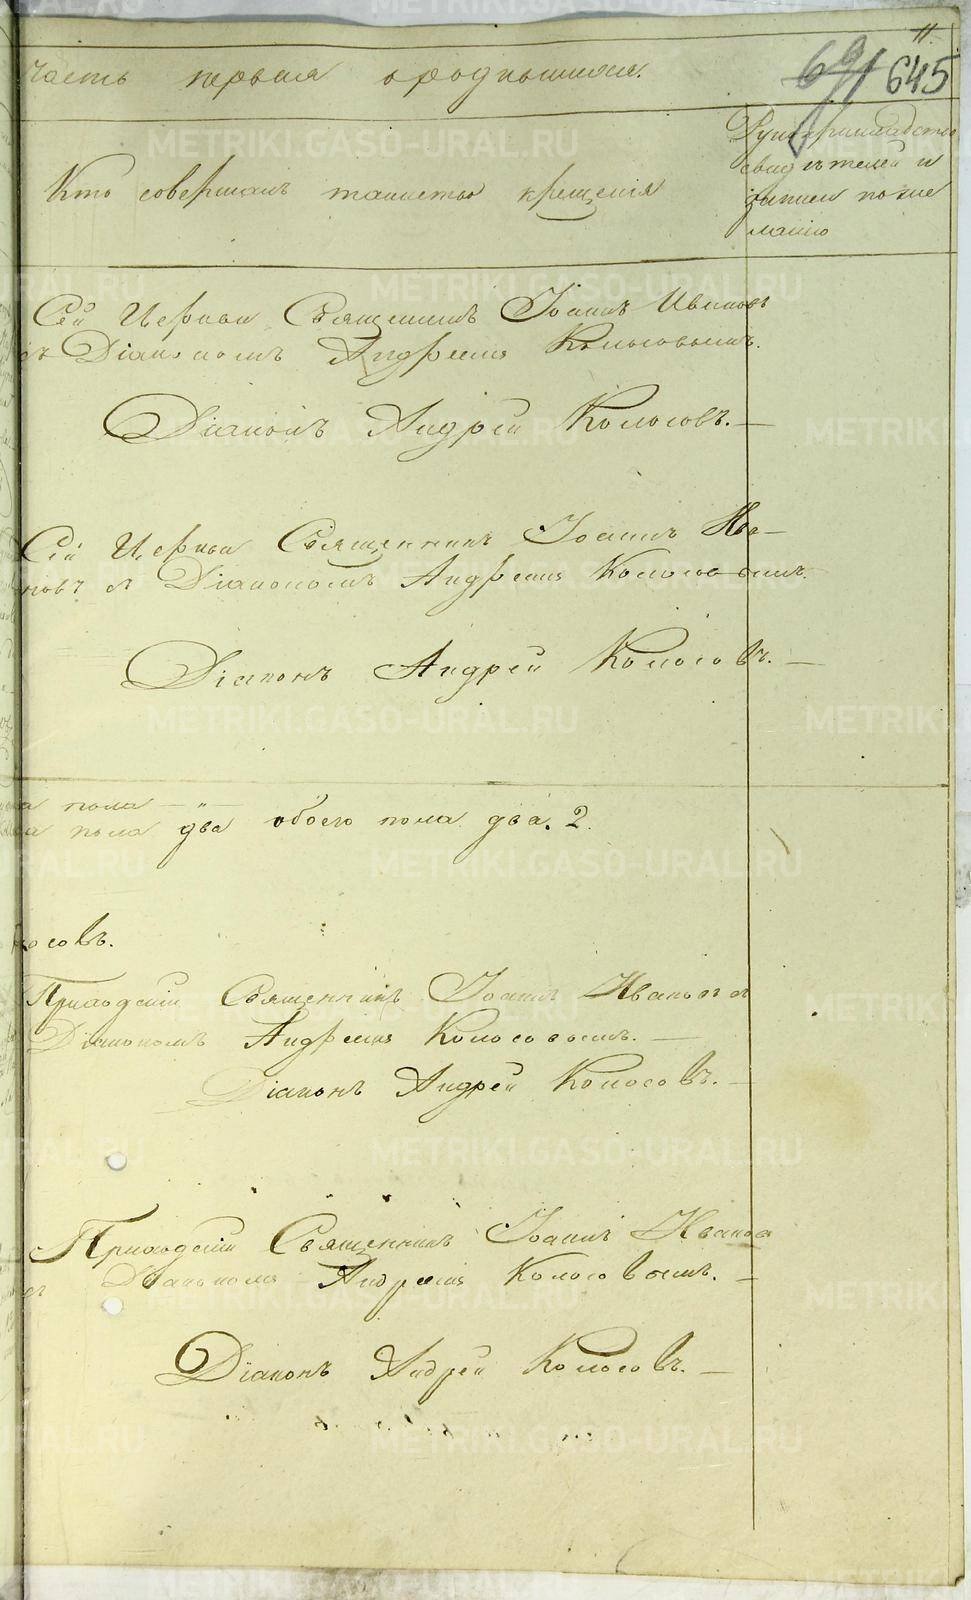 11.
691 645
часть первыя о родившихся.
Кто совершалъ таинство крещенія
Рукоприкладство
свидѣтелей и
записи по же
ланію
Сей Церкви Священникъ Іоаннъ Ивановъ
съ Діакономъ Андреемъ Колосовымъ.
Діаконъ Андрей Колосовъ.
Сей Церкви Священникъ Іоаннъ Ива-
новъ съ Діакономъ Андреемъ Колосовымъ.
Діаконъ Андрей Колосовъ.
пола — " —
пола два обоего пола два. 2.
лосовъ.
Приходскій Священникъ Іоаннъ Ивановъ съ
Діакономъ Андреемъ Колосовымъ.
Діаконъ Андрей Колосовъ.
Приходскій Священникъ Іоаннъ Иванов
съ Діакономъ Андреемъ Колосовымъ.
Діаконъ Андрей Колосовъ.
METRIKI.GASO-URAL.RU